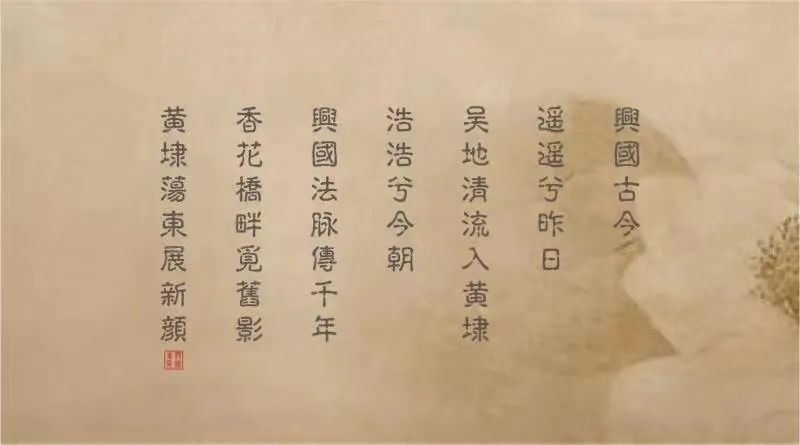 興國古今
遥遥兮昨日
吴地清流入黄埭
浩浩兮今朝
興國法脉傳千年
香花橋畔覓舊影
黄埭蕩東展新顔